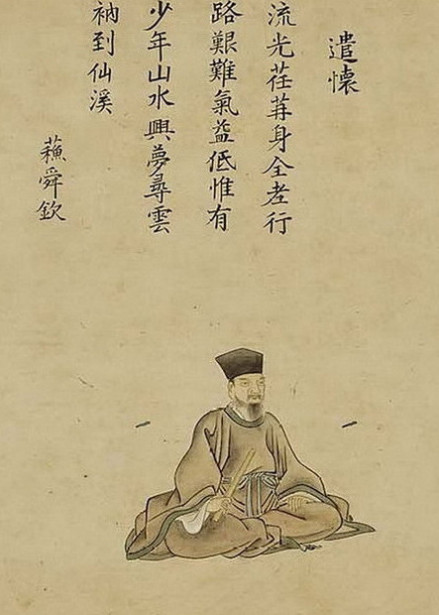 遣懐
流光荏苒身全老行
路艱難氣益低惟有
少年山水興夢尋雲
衲到仙溪
蘓舜欽